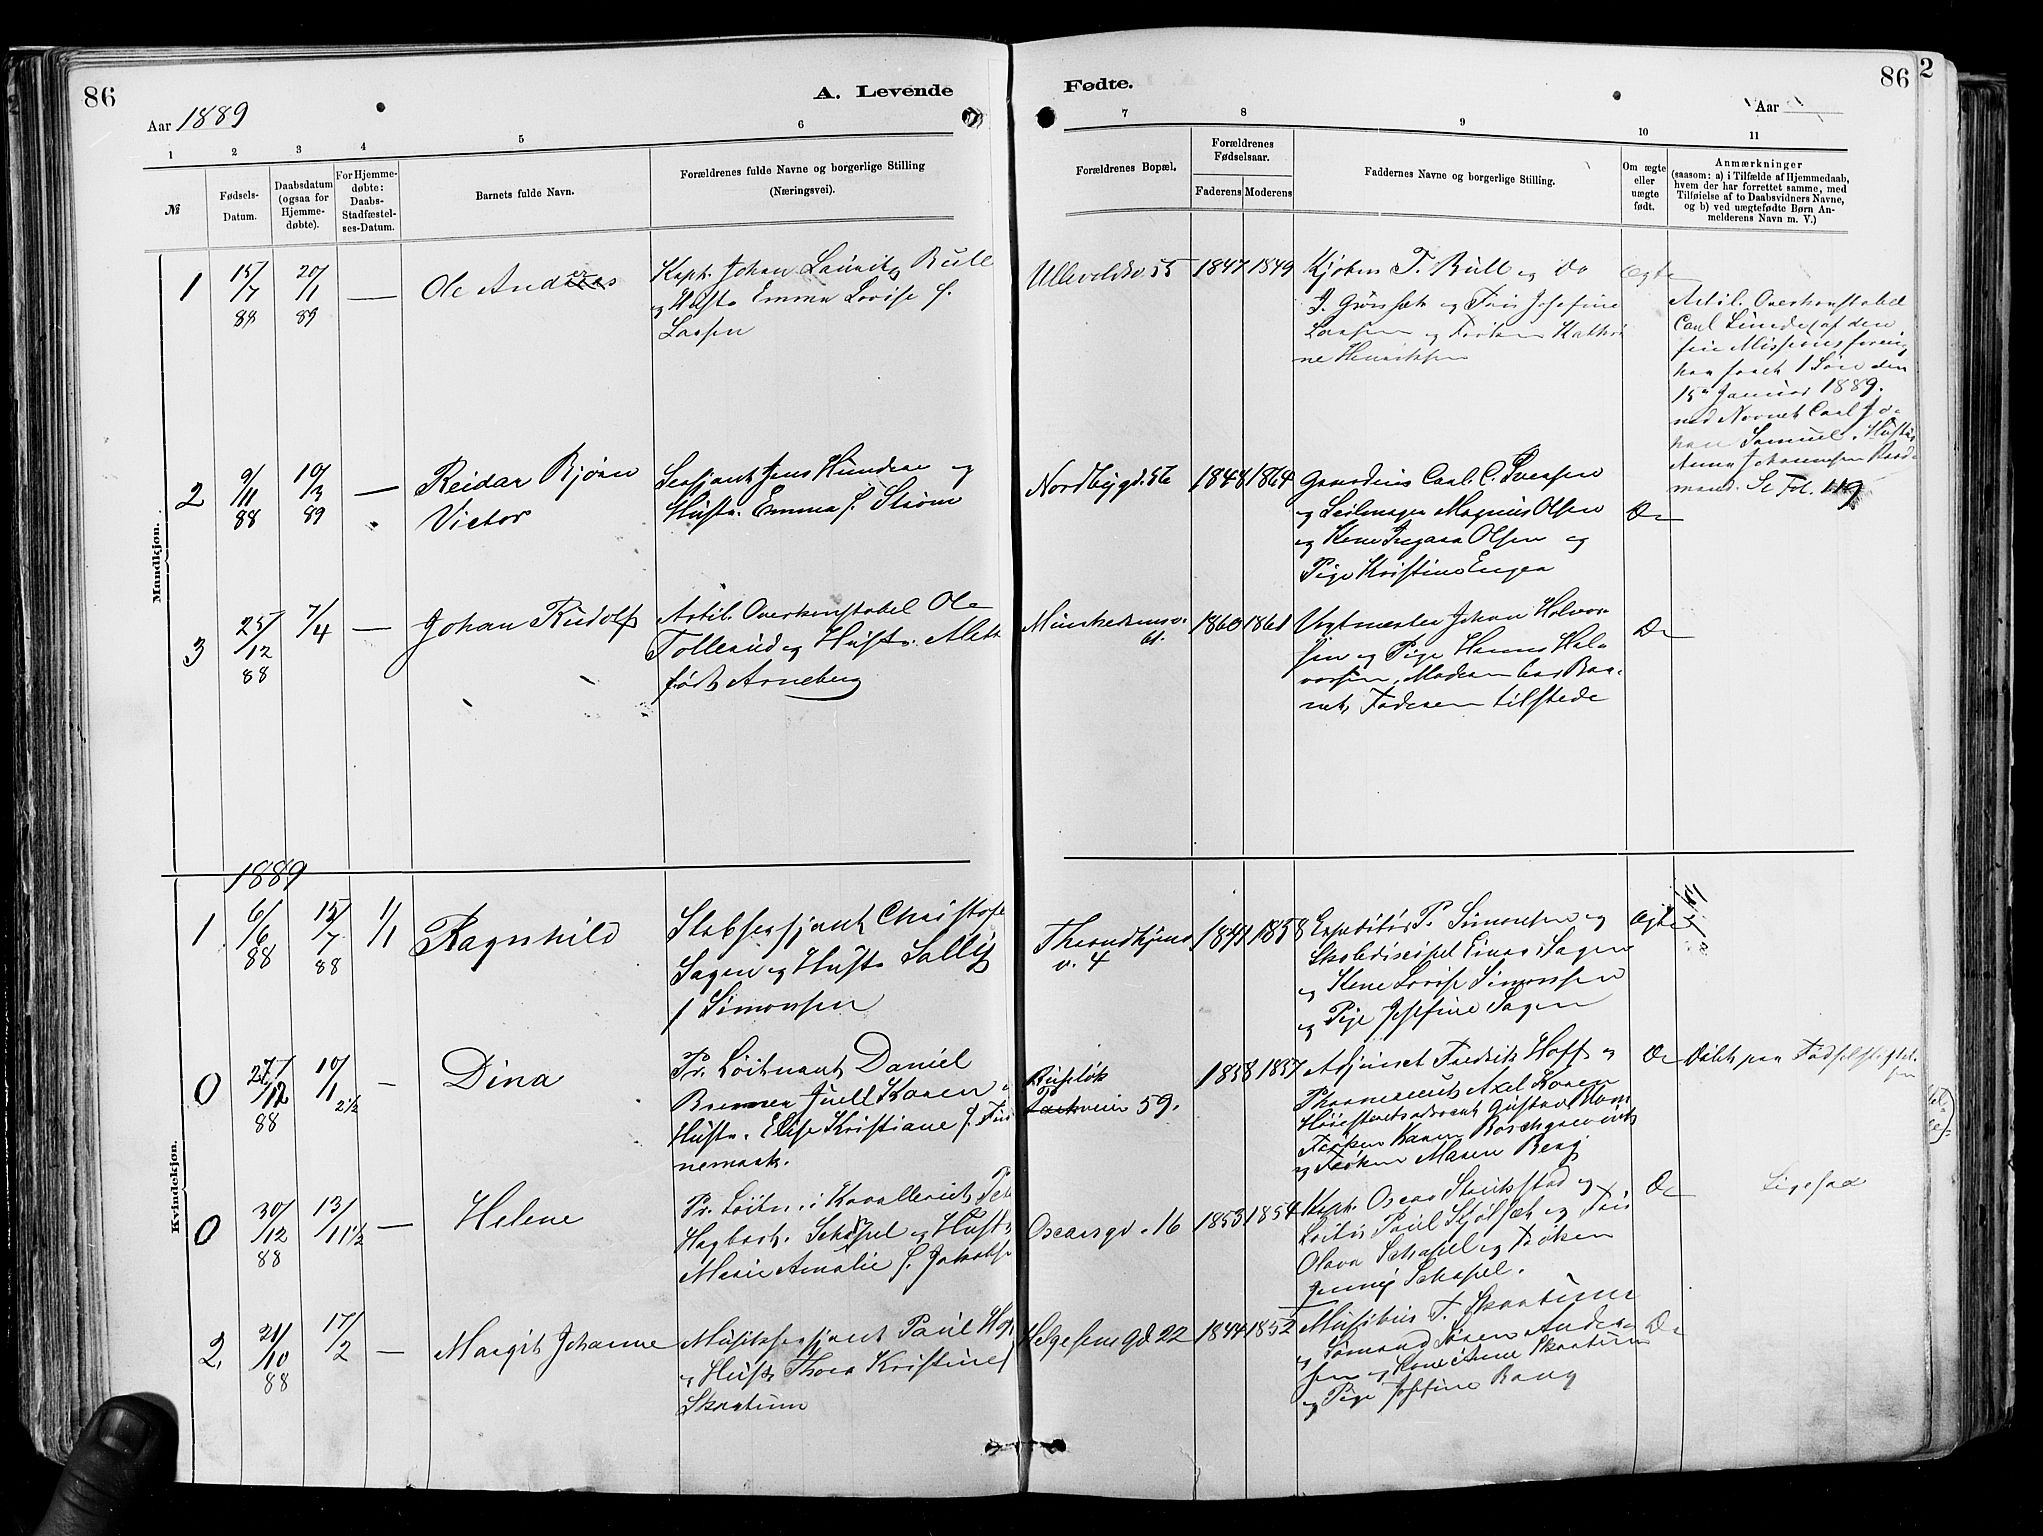 86
A. Levende
Fødte.
86
2
Aar 1889
Aar
1 2 3 4 5 6 7 8 9 10 11
№
Fødsels-
Datum.
Daabsdatum
(ogsaa for
Hjemme-
døbte).
For Hjemme-
døbte:
Daabs-
Stadfæstel-
ses-Datum.
Barnets fulde Navn.
Forældrenes fulde Navne og borgerlige Stilling
(Næringsvei).
Forældrenes Bopæl.
Forældrenes
Fødselsaar.
Faderens Moderens
Faddernes Navne og borgerlige Stilling.
Om ægte
eller
uægte
født.
Anmærkninger
(saasom: a) i Tilfælde af Hjemmedaab,
hvem der har forrettet samme, med
Tilføielse af to Daabsvidners Navne,
og b) ved uægtefødte Børn An-
melderens Navn m. V.)
Mandkjøn.
1
15/7 88
20/1 89
—
Ole Anders
Kapt. Johan Lauritz Bull
og Hustr. Emma Lovise f.
Larsen
Ullevoldsv. 55
1847 1849
Kjøbm T. Bull og Do
J. Grønsæt og Frøis Josefine
Larssen og Frøken Kathri
ne Henriksen
Ægte
Artil. Overkonstabel
Carl Linde af den
fri Missionsforenig
har faaet 1 Søn den
15de Januar 1889.
med Navnet Carl Jo-
han Samuel. Hustru
Anna Johannesen Raade
mand. Se Fol. 119
2
9/11 88
10/3 89
—
Reidar Bjørn
Victor
Sersjant Jens Hundere og
Hustr. Emma f. Strøm
Nordbygd. 56
1848 1864
Guardein Carl C. Iversen
og Seilmager Magnus Olsen
og Kone Ingara Olsen og
Pige Kristine Engen
Do
3
25/12 88
7/4
—
Johan Rudolf
Artil. Overkonstabel Ole
Tollerud og Hustr. Mette
født Arneberg
Munkedamsv.
61.
1860 1861
Vagtmester Johan Halvor
sen og Pige Hanna Hal-
vorsen, Moderen bar Bar-
net, Faderen tilstede
Do
1889
Kvindekjøn.
1
6/6 88
15/7 88
1/1
Ragnhild
Stabsersjant Christofer
Sagen og Hustr. Sally
f Simonsen
Throndhjems
v. 4
1841 1858
Expeditør P. Simonsen og
Skoledisipel Einar Sagen
og Kone Lovise Simonsen
og Pige Josefine Sagen
Ægte
0
27/12 88
10/1 2½
—
Dina
Pr. Løitnant Daniel
Bremer Juell Koren og
Hustr. Elise Kristiane f. Fin
nemark.
Parkveien 59.
1858 1857
Adjunct Fredrik Hoff og
Pharmaceut Axel Koren
Høiesteretsadvocat Gustav Blom
Frøken Karen Borchgrevink
og Frøken Maren Berg
Do
Døbt paa Fødselsstiftel
sen
0
30/12 88
13/1 1½
—
Helene
Pr. Løitn. i Kavalleriet Pet
Hagbart. Schapel og Hustr
Marie Amalie f. Jakobse
Oscarsgd. 16
1853 1854
Kapt. Oscar Strikstad og
Løitn Paul Skjølsæt og Frøis
Olava Schapel og Frøken
Jenny Schapel.
Do
Ligesaa
2.
21/10 88
17/2
—
Margit Johanne
Musiksersjant Paul Hop
og Hustr Thora Kristine f
Skartum
Helgesens gd 22
1844 1852
Musikus F. Skartum
og Sømand Søren Anders-
sen og Kone Anne Skartum
og Pige Josefine Bang
Do